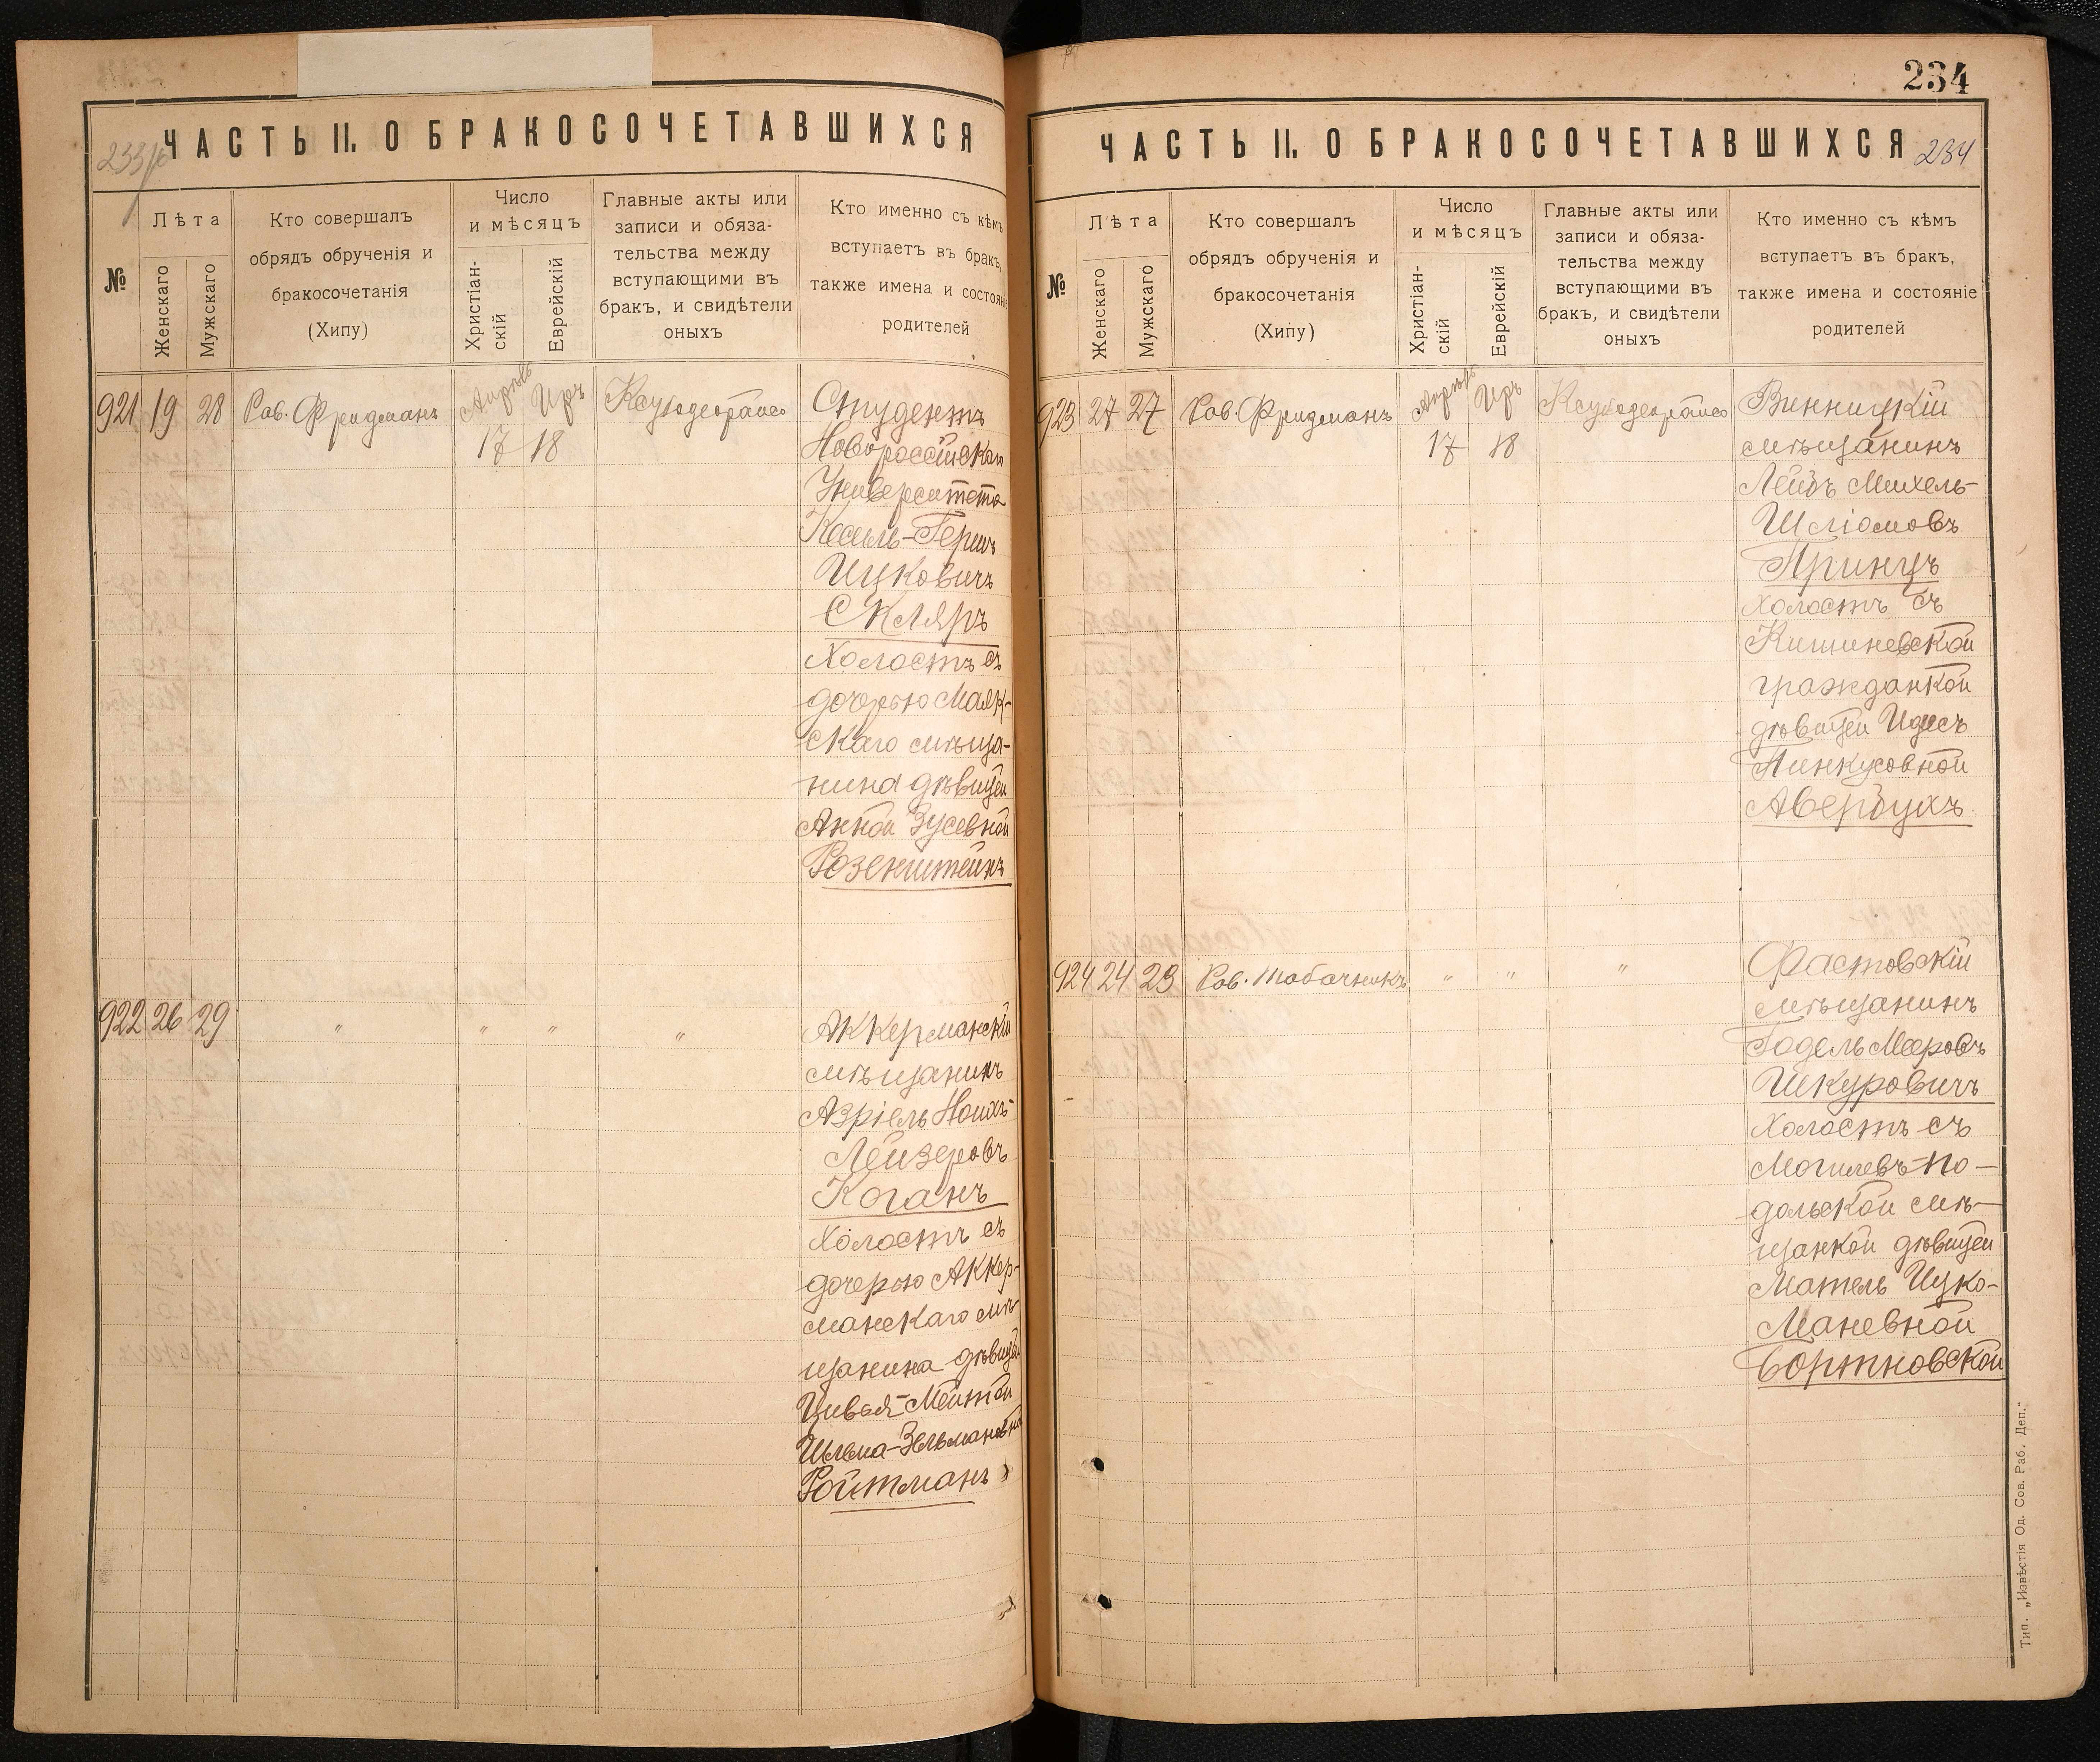 233 об
ЧАСТЬ II. О БРАКОСОЧЕТАВШИХСЯ
№
Лѣта
Женскаго
Мужскаго
Кто совершалъ
обрядъ обрученія и
бракосочетанія
(Хипу)
Число
и мѣсяцъ
Христіан-
скій
Еврейскій
Главные акты или
записи и обяза-
тельства между
вступающими въ
бракъ, и свидѣтели
оныхъ
Кто именно съ кѣмъ
вступаетъ въ бракъ,
также имена и состояніе
родителей
921 19 28 Рав. Фридманъ Апрѣль Иръ
17 18
Студентъ
Новороссійскаго
Университета
Кесиль-Гершъ
Ицковичъ
Скляръ
Холостъ съ
дочерью Маяк-
скаго мѣща-
нина дѣвицей
Анной Зусевной
Розенштейнъ
922 26 29 " " " "
Аккерманскій
мѣщанинъ
Азріель Ноихъ-
Лейзеровъ
Коганъ
Холостъ съ
дочерью Аккер-
манскаго мѣ-
щанина дѣвицей
Цивьей-Мейтой
Шлема-Зельмановной
Ройтманъ
234
ЧАСТЬ II. О БРАКОСОЧЕТАВШИХСЯ
234
№
Лѣта
Женскаго
Мужскаго
Кто совершалъ
обрядъ обрученія и
бракосочетанія
(Хипу)
Число
и мѣсяцъ
Христіан-
скій
Еврейскій
Главные акты или
записи и обяза-
тельства между
вступающими въ
бракъ, и свидѣтели
оныхъ
Кто именно съ кѣмъ
вступаетъ въ бракъ,
также имена и состояніе
родителей
923 27 27 Рав. Фридманъ Апрѣль Иръ
17 18
Винницкій
мѣщанинъ
Лейбъ Михель-
Шліомовъ
Принцъ
Холостъ съ
Кишиневской
гражданкой
дѣвицей Идесъ
Пинкусовной
Авербухъ
924 24 23 Рав. Табачникъ " " "
Фастовскій
мѣщанинъ
Годель Мееровъ
Шкуровичъ
Холостъ съ
Могилевъ-По-
дольской мѣ-
щанкой дѣвицей
Матель Ицко-
Маневной
Бортновской
Тип. „Извѣстія Од. Сов. Раб. Деп."